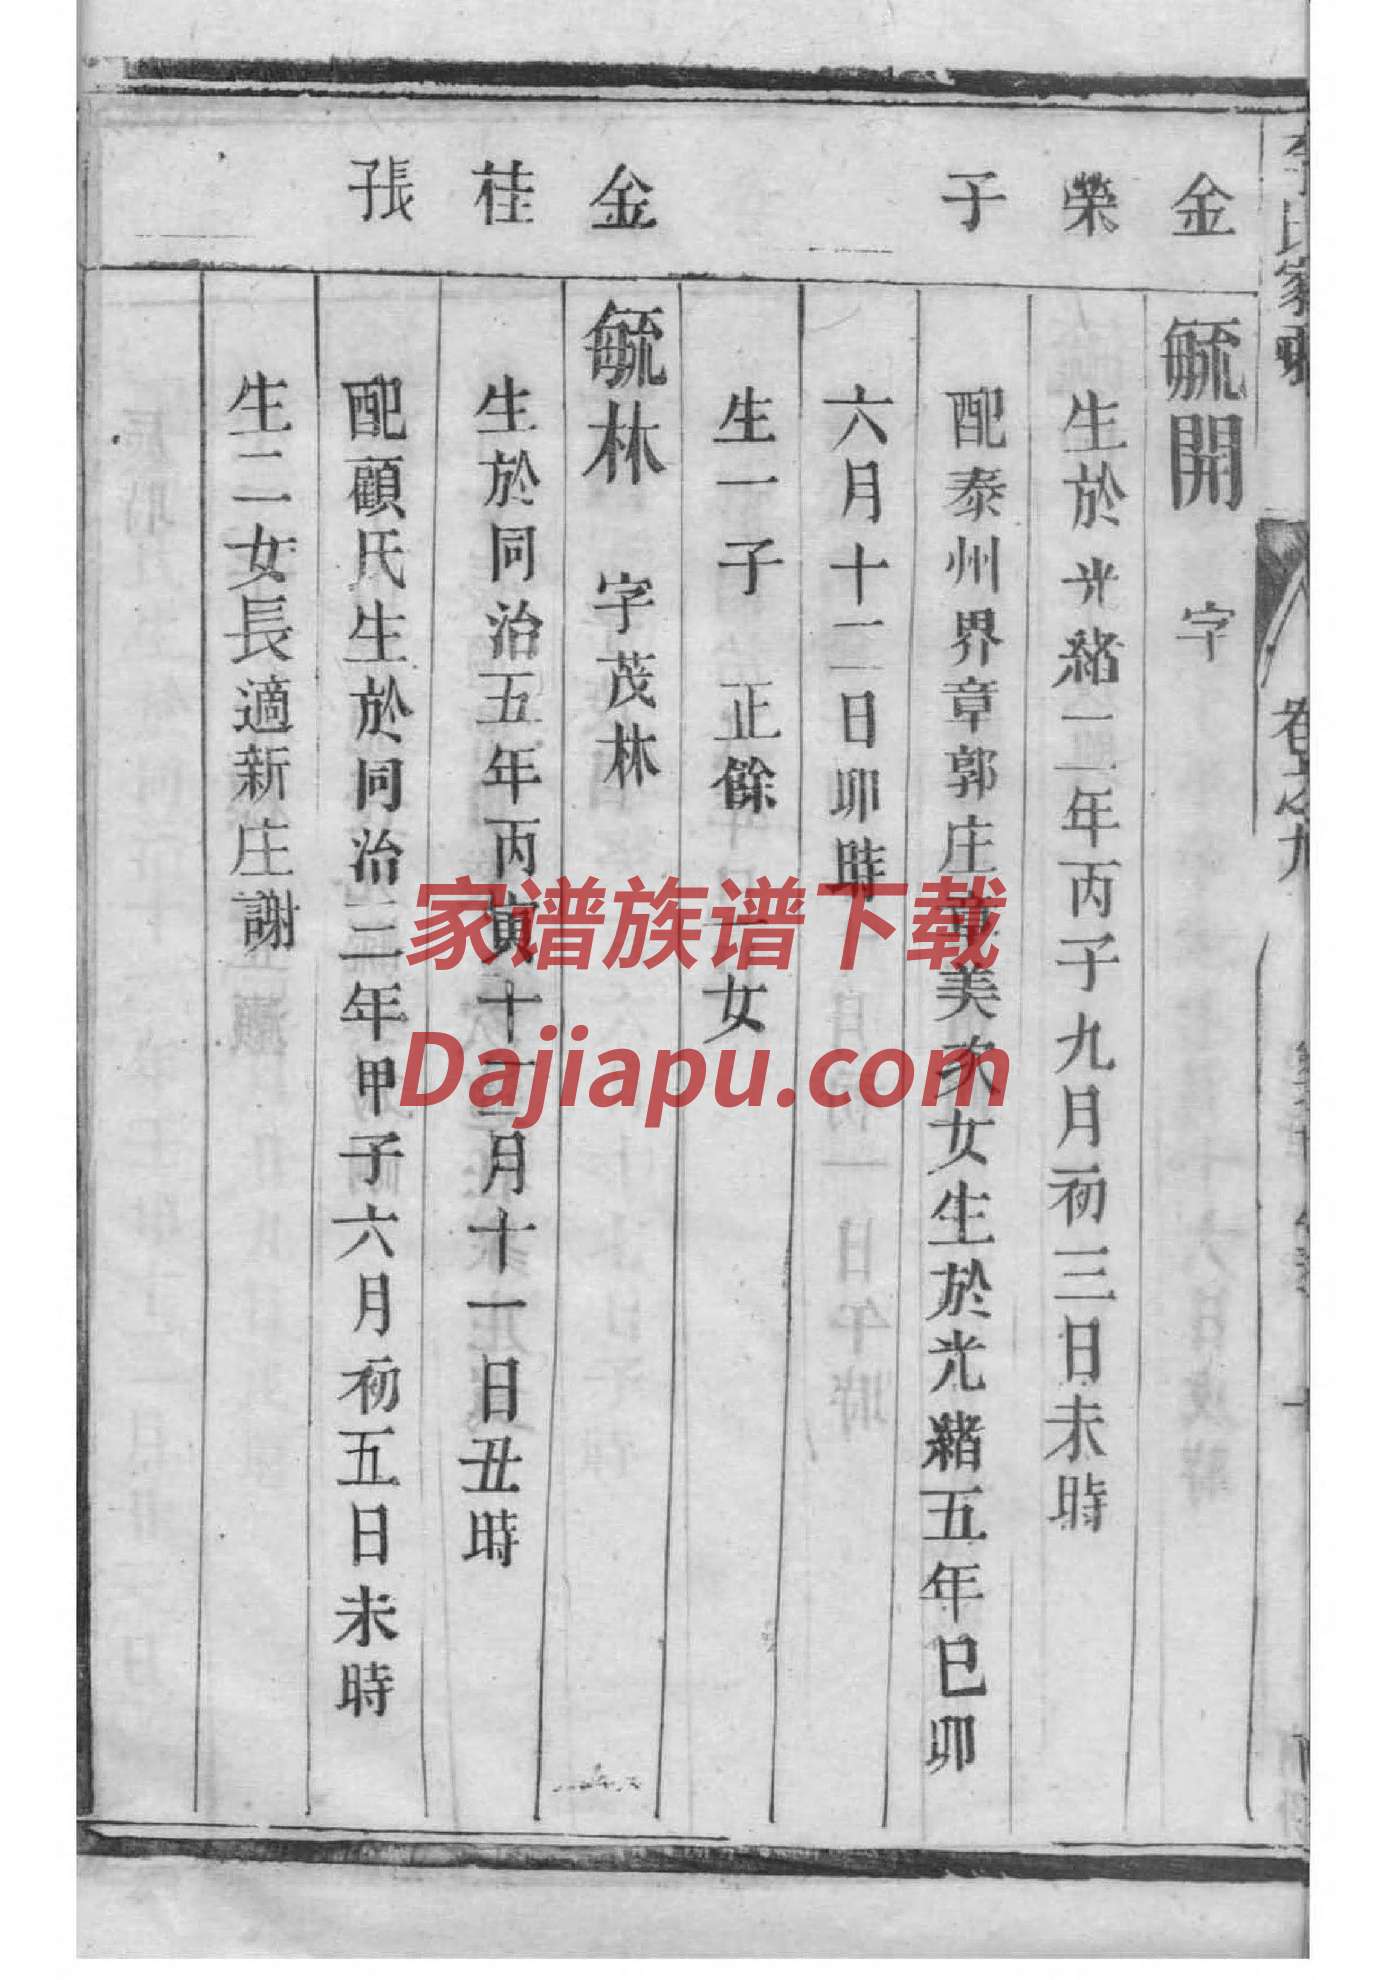 金
榮
子
毓開 字
生於光緒二年丙子九月初三日未時
配泰州界章郭庄章美次女生於光緒五年巳卯
六月十二日卯時
生一子 正餘 一女
金
桂
張
毓林 字茂林
生於同治五年丙寅十二月十一日丑時
配顧氏生於同治三年甲子六月初五日未時
生二女長適新庄謝
家谱族谱下载
Dajiapu.com